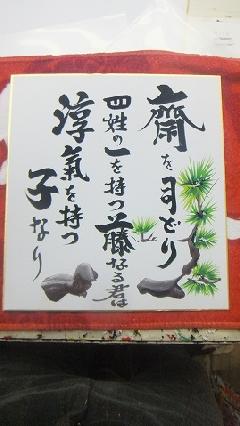 齋を司どり
四姓の一を持つ藤なる君は
淳氣を持つ
子なり